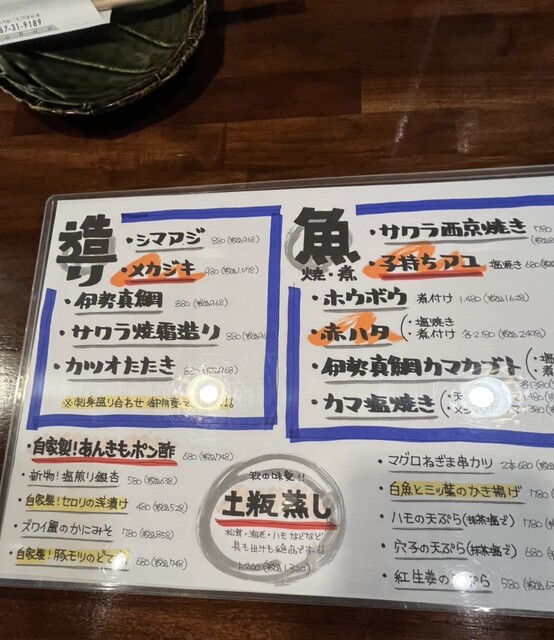 67-31-9189
造り
・シマアジ 880(税込968)
・メカジキ 980(税込1,078)
・伊勢真鯛 880(税込968)
・サワラ焼霜造り 880(税込968)
・カツオたたき 880(税込968)
※刺身盛り合わせ
魚
焼・煮
・サワラ西京焼き 780
・子持ちアユ 塩焼き 680
・ホウボウ 煮付け 1,480(税込1,628)
・赤ハタ ・塩焼き ・煮付け 各2,180(税込2,398)
・伊勢真鯛カマカブト
・カマ塩焼き
・自家製!あんきもポン酢 680(税込748)
・新物!塩煎り銀杏 580(税込638)
・自家製!セロリの浅漬け 480(税込528)
・ズワイ蟹のかにみそ 780(税込858)
・自家製!豚モツのどて 680(税込748)
秋の味覚!!
土瓶蒸し
松茸・海老・ハモなどなど
具も出汁も絶品です!!
1,200(税込1,320)
・マグロねぎま串カツ 2本680
・白魚と三ッ葉のかき揚げ 780
・ハモの天ぷら(抹茶塩で) 780
・穴子の天ぷら(抹茶塩で) 680
・紅生姜の天ぷら 580